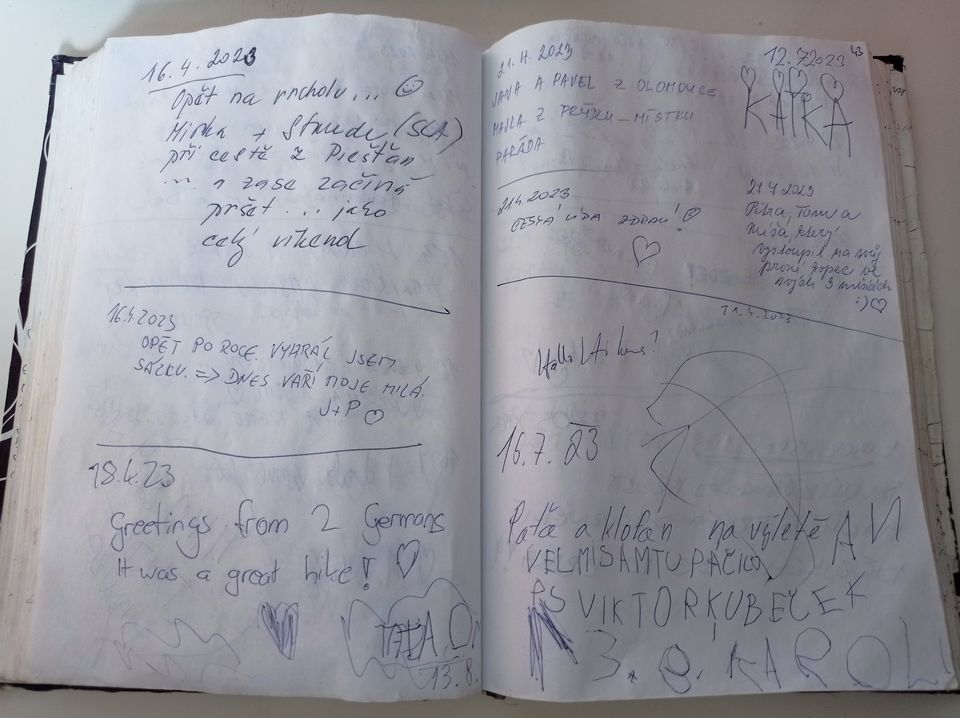 16.4.2023
Opět na vrcholu...
Mirka + Standa (SCA)
při cestě z Piešťan
... a zase začíná
pršet... jako
celý víkend
16.4.2023
OPĚT PO ROCE. VYHRÁL JSEM
SÁZKU. => DNES VAŘÍ MOJE MILÁ.
J+P
18.4.23
Greetings from 2 Germans
It was a great hike!
TATA
13.8.
43
21.4.2023
JANA A PAVEL Z OLOMOUCE
MAJLA Z FRÝDKU-MÍSTKU
PARÁDA
12.7.2023
KATKA
21.4.2023
ČESKÁ LÍPA ZDRAVÍ!
27.4.2023
Petra, Tom a
Míša, který
vystoupil na svůj
první kopec ve
svých 9 měsících
:)
21.4.2023
Hallo
16.7.23
Paťa a klofan na výletě
VELMISAMTU PÁČILO
PS VIKTOR KUBEČEK
3. 8. KAROL